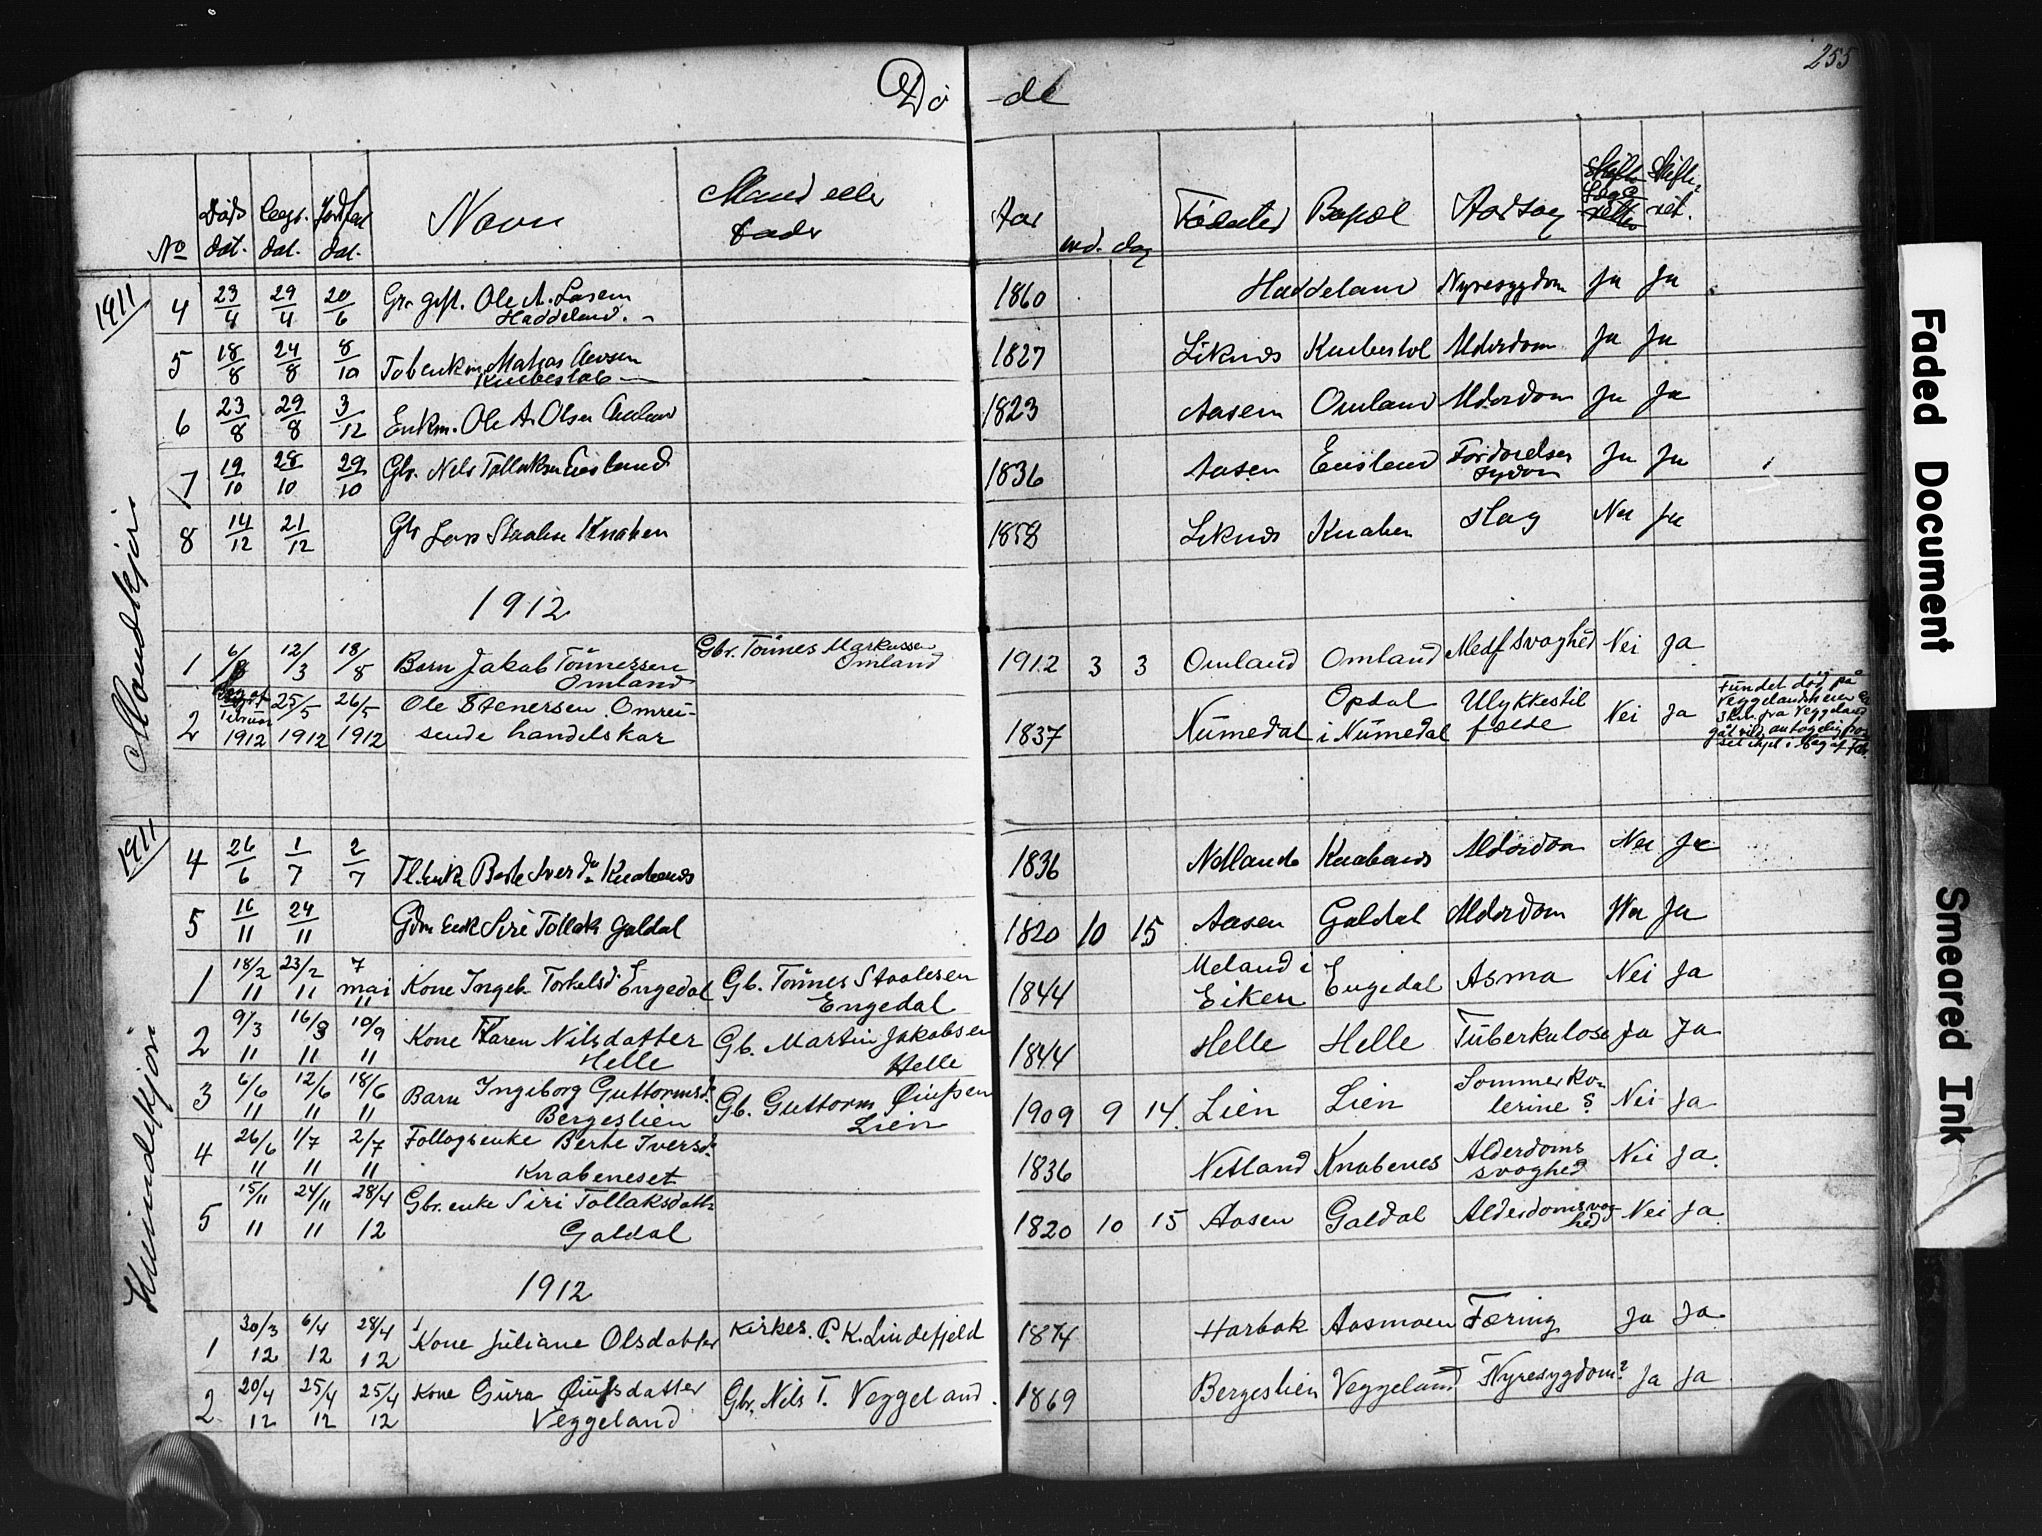 255
Dö - de
No Döds dat. Begr. dat. Jordf. dat. Navn Mand eller Fader Aar md. dag Födested Bopæl Aarsag Skifte ret.
Mandkjøn
1911
4 23/4 29/4 20/6 Gr. gift. Ole A. Lasem 1860 Haddeland Nyresygdom Ja Ja
Haddeland.
5 18/8 24/8 8/10 Enkm. Matias 1827 Liknes Knebestol Alderdom Ja Ja
6 23/8 29/8 3/12 Enkm. Ole A. Olsen Omland 1823 Aasem Omland Alderdom Ja Ja
7 19/10 28/10 29/10 Gbr. Nels Tollaksen 1836 Aasen Fordöielses Ja Ja
sydom
8 14/12 21/12 Gbr Lars Staalese Knaben 1858 Liknes Knaben slag Nei Ja
1912
1 6/3 12/3 18/8 Barn Jakob Tönnessen Gbr. Tönnes Markussen 1912 3 3 Omland Omland Medf svaghed Nei Ja
Omland Omland
2 Beg. af Februar 1912 25/5 1912 26/5 1912 Ole Stenersen. Omrei- 1837 Numedal Opdal i Numedal Ulykkestil Nei Ja Fundet död på
sende handelskar fælde Veggelandsheien
fra Veggeland
gåt vild antagelig
ihjel i Beg af Feb.
Kvindekjøn
1911
4 26/6 1/7 2/7 Berte Iversd. Knabenes 1836 Netland Knabenes Alderdom Nei Ja
5 16/11 24/11 Gbr. Enk Siri Tollak Galdal 1820 10 15 Aasen Galdal Alderdom Nei Ja
1 18/2 11 23/2 11 7 mai 11 Kone Ingeb. Torkelsd. Engedal Gb. Tönnes Staalesen 1844 Meland i Engedal Asma Nei Ja
Engedal Eiken
2 9/3 11 16/3 11 10/9 11 Kone Karen Nilsdatter Gb. Martin Jakobsen 1844 Helle Helle Tuberkulose Ja Ja
Helle Helle
3 6/6 11 12/6 11 18/6 11 Barn Ingeborg Guttormsd. Gb. Guttorm Øiufsen 1909 9 14. Lien Lien Sommerko- Nei Ja
Bergeslien Lien lerine ?
4 26/6 11 1/7 11 2/7 11 Follogsenke Berte Iversd. 1836 Netland Knabenes Alderdoms Nei Ja.
Knabeneset svaghed
5 15/11 11 24/11 11 28/4 12 Gbr. enke Siri Tollaksdatt. 1820 10 15 Aasen Galdal Alderdomsvag- Nei Ja
Galdal hed
1912
1 30/3 12 6/4 12 28/4 12 Kone Juliane Olsdatter Kirkes. P. K. Lindefjeld 1874 Harbak Aasmoen Tæring Ja Ja
2 20/4 12 25/4 12 25/4 12 Kone Gura Øiufsdatter Gbr. Nils T. Veggeland. 1869 Bergeslien Veggeland Nyresygdom? Ja Ja
Veggeland
Faded Document
Smeared Ink